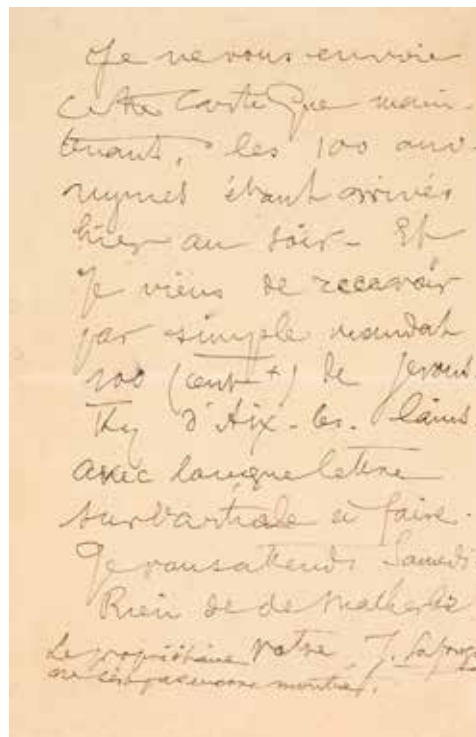 Je ne vous envoie
cette carte que main-
tenant, les 100 ano-
nymes étant arrivés
hier au soir - Et
je viens de recevoir
par simple mandat
100 (cent +) de
d'Aix-les-
avec longue lettre
sur l'article à faire.
Je vous attends Samedi
Rien de de Malherbe
Le propriétaire Votre J.
ne s'est pas encore montré.